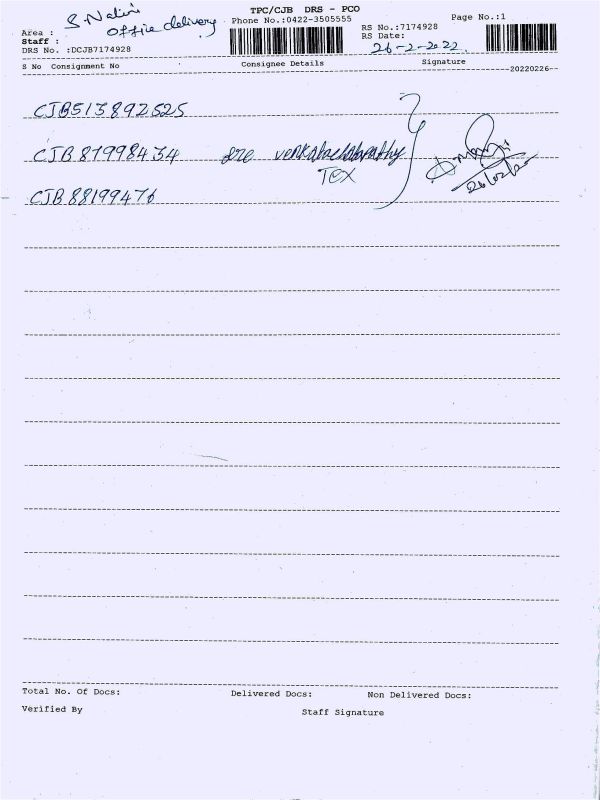 TPC/CJB DRS - PCO
S. Nalini
Office delivery
Area :
Staff :
DRS No. :DCJB7174928
Phone No.:0422-3505555
RS No.:7174928
RS Date:
26-2-2022
Page No.:1
S No Consignment No Consignee Details Signature
20220226
CJB513892525
CJB 87998434 sre venkatachalapathy
Tex
CJB 88199476
26/02/22
Total No. Of Docs: Delivered Docs: Non Delivered Docs:
Verified By Staff Signature